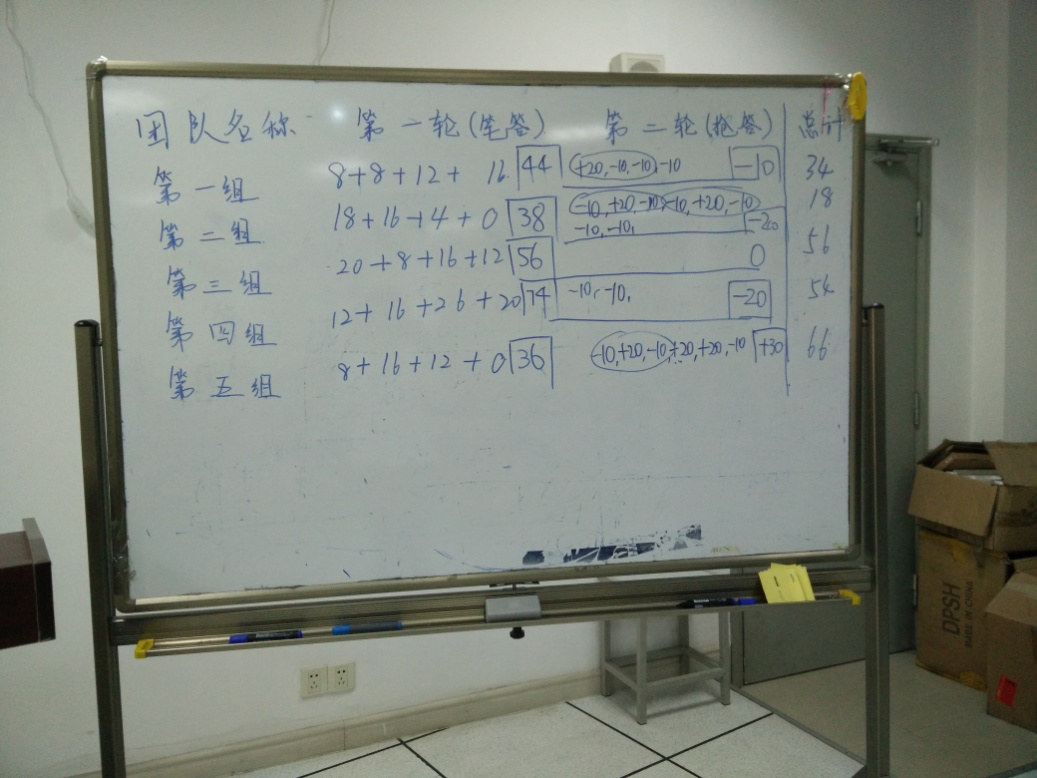 团队名称 第一轮(笔答) 第二轮(抢答) 总计
第一组 8+8+12+ 16 44 +20,-10,-10,-10 -10 34
第二组 18+16+4+0 38 -10,+20,-10,-10,+20,-10 18
-10,-10, -20
第三组 20+8+16+12 56 0 56
第四组 12+16+26+20 74 -10,-10, -20 54
第五组 8+16+12+0 36 -10,+20,-10,+20,+20,-10 +30 66
DPSH
MADE IN CHINA